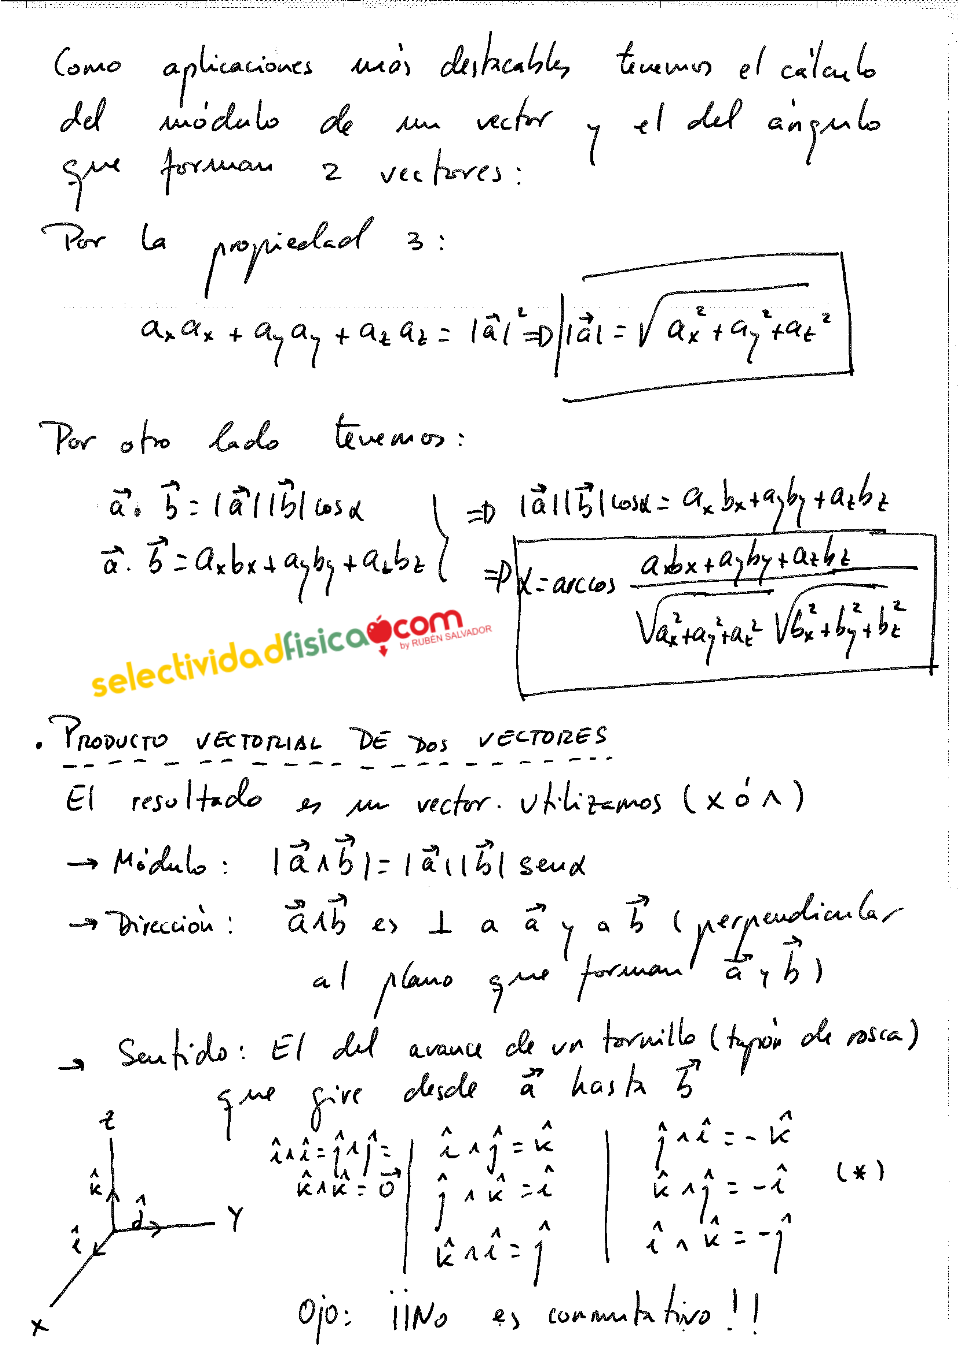 Como aplicaciones más destacables tenemos el cálculo
del módulo de un vector y el del ángulo
que forman 2 vectores:
Por la propiedad 3:
aₓaₓ + a_y a_y + a_z a_z = |a⃗|² ⇒ |a⃗| = √(aₓ² + a_y² + a_z²)
Por otro lado tenemos:
a⃗ · b⃗ = |a⃗||b⃗| cos α
a⃗ · b⃗ = aₓbₓ + a_y b_y + a_z b_z
⇒ |a⃗||b⃗| cos α = aₓbₓ + a_y b_y + a_z b_z
⇒ α = arccos (aₓbₓ + a_y b_y + a_z b_z) / (√(aₓ² + a_y² + a_z²) √(bₓ² + b_y² + b_z²))
selectividadfisica.com
by RUBÉN SALVADOR
. PRODUCTO VECTORIAL DE DOS VECTORES
El resultado es un vector. Utilizamos (× ó ∧)
→ Módulo: |a⃗ ∧ b⃗| = |a⃗||b⃗| sen α
→ Dirección: a⃗ ∧ b⃗ es ⊥ a a⃗ y a b⃗ (perpendicular
al plano que forman a⃗ y b⃗)
→ Sentido: El del avance de un tornillo (tapón de rosca)
que gire desde a⃗ hasta b⃗
z
k̂
ĵ
Y
î
X
î ∧ î = ĵ ∧ ĵ =
k̂ ∧ k̂ = 0⃗
î ∧ ĵ = k̂
ĵ ∧ k̂ = î
k̂ ∧ î = ĵ
ĵ ∧ î = -k̂
k̂ ∧ ĵ = -î
î ∧ k̂ = -ĵ
(*)
Ojo: ¡¡No es conmutativo!!